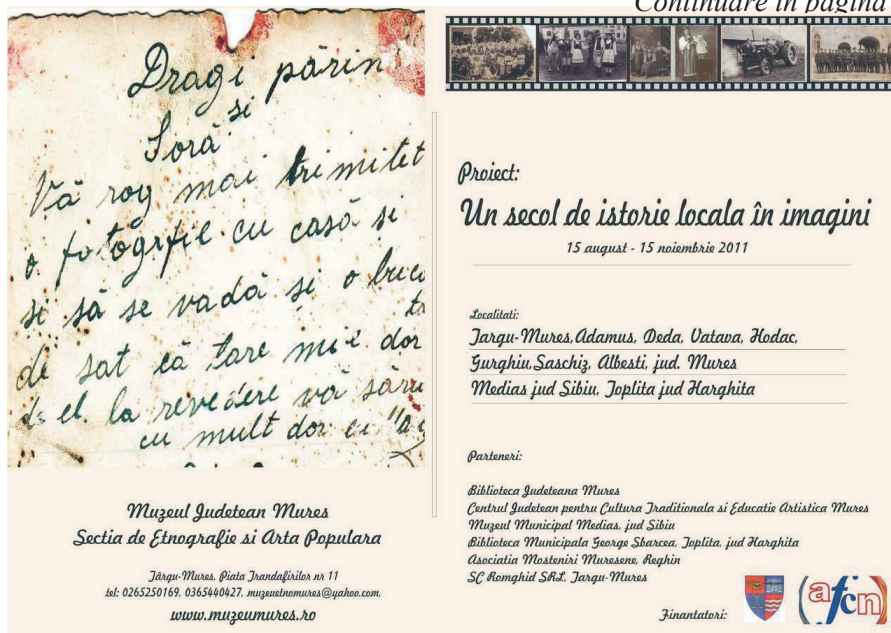 Continuare în pagina
Dragi părin
si
Soră.
Vă rog mai trimitet
o fotogrfie cu casă si
si să se vadă și o buca
ta
de sat că tare mi-e dor
de el. la revedere vă săru
cu mult dor
Muzeul Judetean Mures
Sectia de Etnografie si Arta Populara
Târgu-Mures, Piata Trandafirilor nr 11
tel: 0265250169, 0365440427, muzeuetnomures@yahoo.com,
www.muzeumures.ro
Proiect:
Un secol de istorie locala în imagini
15 august - 15 noiembrie 2011
Localitati:
Targu-Mures, Adamus, Deda, Vatava, Hodac,
Gurghiu, Saschiz, Albesti, jud. Mures
Medias jud Sibiu, Toplita jud Harghita
Parteneri:
Biblioteca Judeteana Mures
Centrul Judetean pentru Cultura Traditionala si Educatie Artistica Mures
Muzeul Municipal Medias, jud Sibiu
Biblioteca Municipala George Sbarcea, Toplita, jud Harghita
Asociatia Mosteniri Muresene, Reghin
SC Romghid SRL, Targu-Mures
Finantatori:
afcn